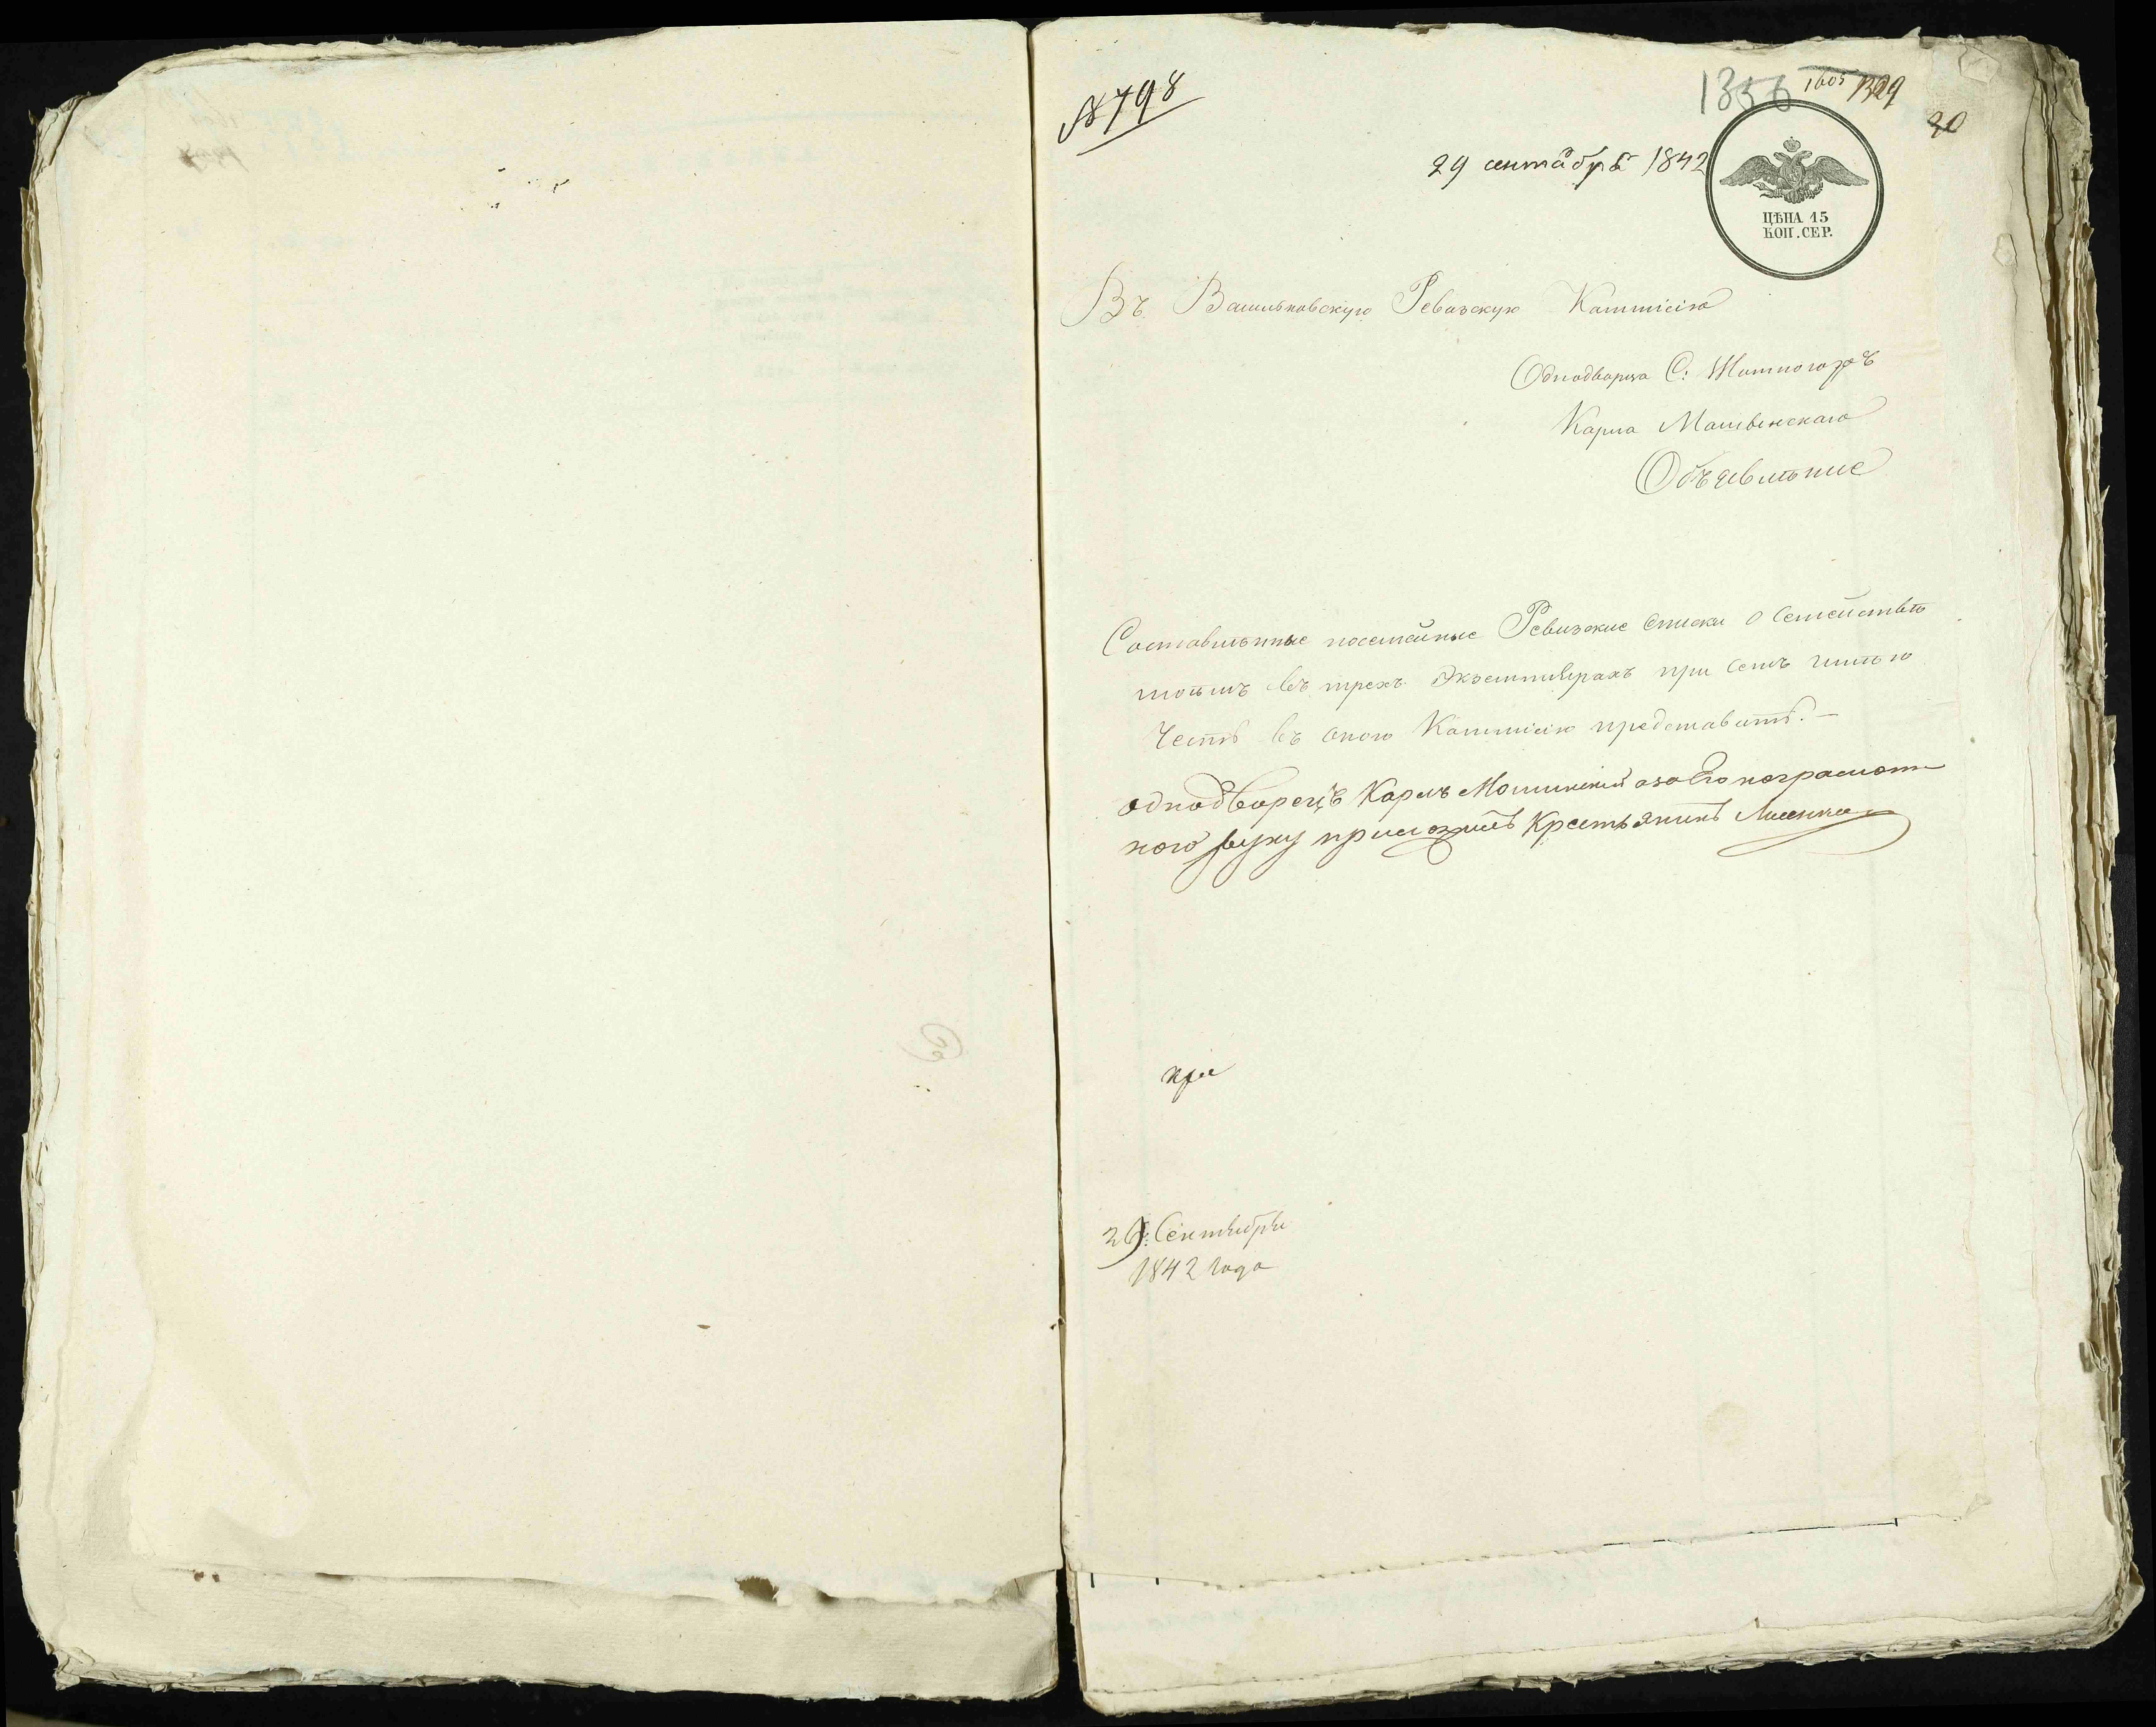 №798
1356 1605 1329
30
29 сентября 1842
ЦѢНА 15
КОП. СЕР.
Въ Васильковскую Ревизскую Коммисію
Однодворца С: Житногоръ
Карла
Объявленіе
Составленные посемейные Ревизские Списки о Семействѣ
моемъ въ трехъ Экземплярахъ при семъ имѣю
Честь въ оную Коммисію представить.—
однодворецъ Карлъ азаЕго неграмот
ного руку приложилъ Крестьянинъ
при
Сентября
1842 года